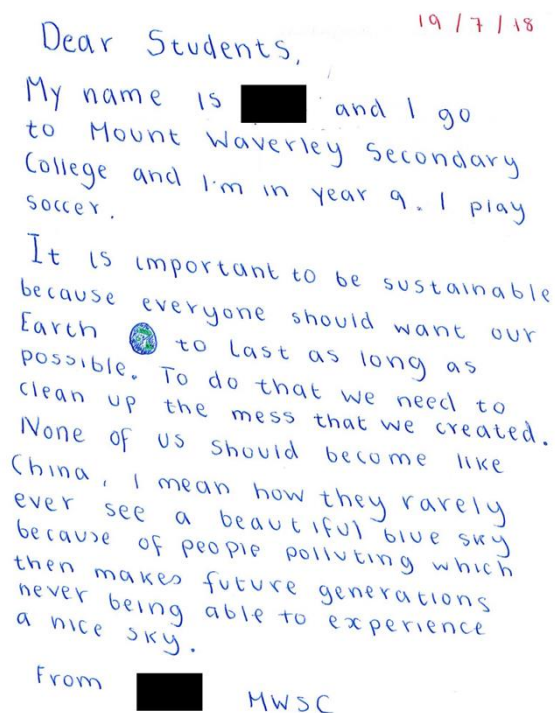 19/7/18
Dear Students,
My name is and I go
to Mount Waverley Secondary
College and I'm in year 9. I play
soccer.
It is important to be sustainable
because everyone should want our
Earth to last as long as
possible. To do that we need to
clean up the mess that we created.
None of us should become like
China, I mean how they rarely
ever see a beautiful blue sky
because of people polluting which
then makes future generations
never being able to experience
a nice sky.
From
MWSC